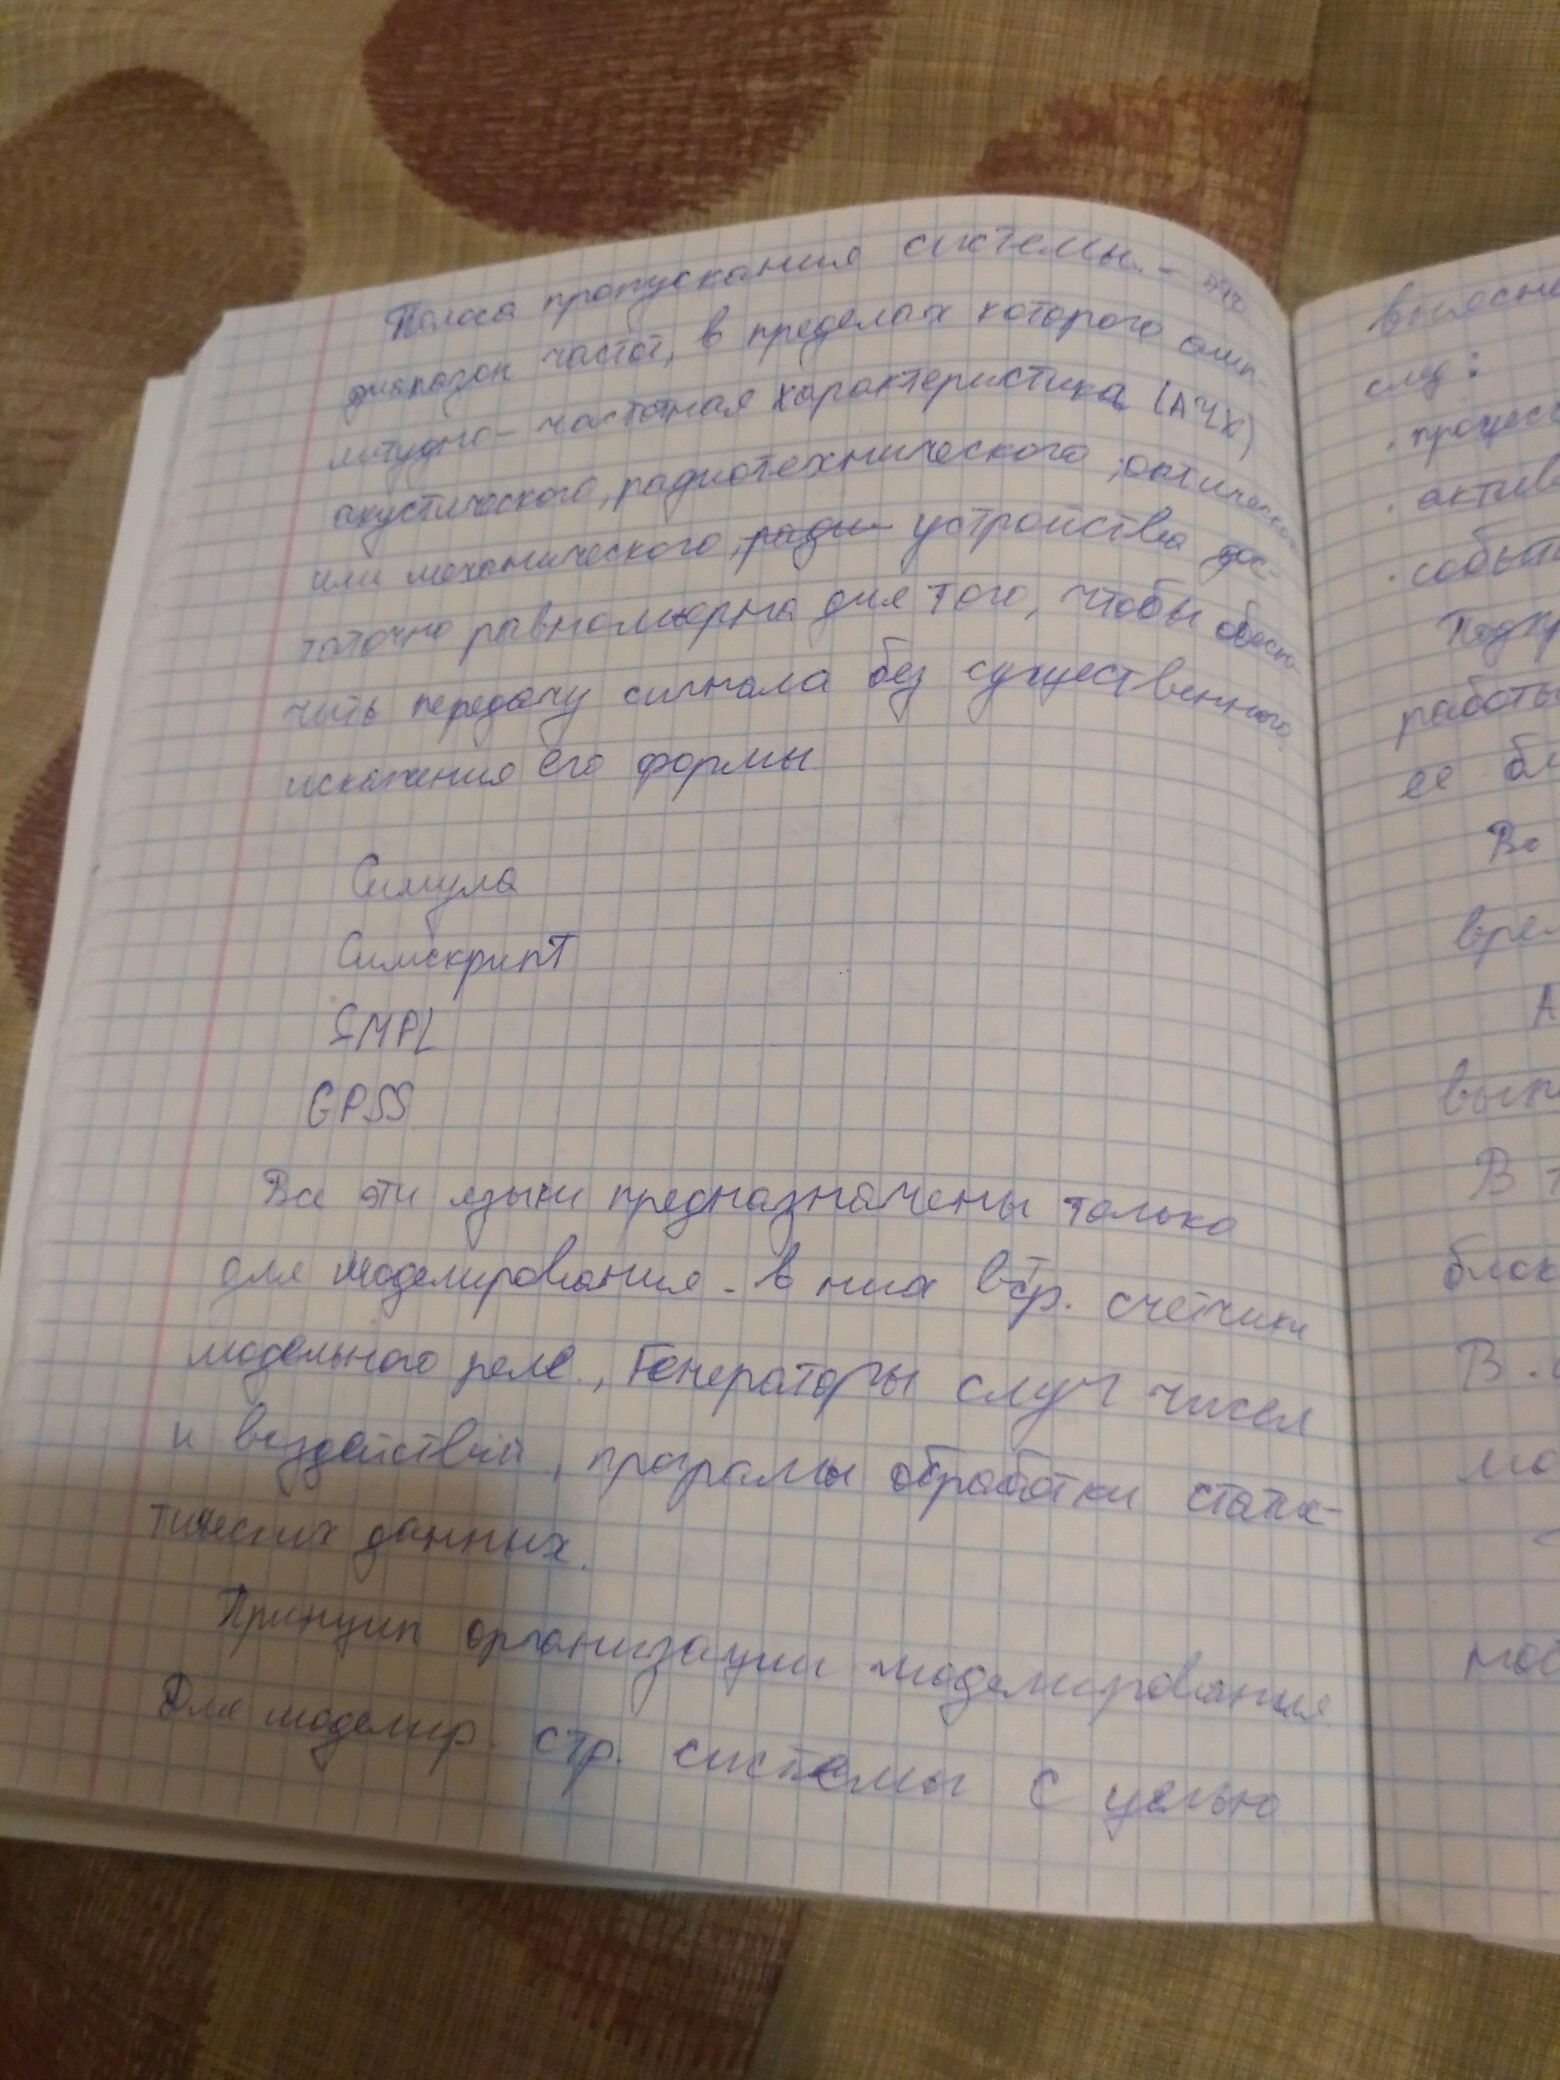 Полоса пропускания системы. - это
диапазон частот, в пределах которого амп-
литудно-частотная характеристика (АЧХ)
акустического, радиотехнического, оптического
или механического, устройства дос-
таточно равномерна для того, чтобы обеспе-
чить передачу сигнала без существенного
искажения его формы
Симула
Симскрипт
SMPL
GPSS
Все эти языки предназначены только
для моделирования - в них встр. счетчики
модельного реле., Генераторы случ чисел
и воздействий, програмы обработки статис-
тических данных.
Принцип организации моделирования
Для моделир. стр. системы с целью
след:
процесс
актив
событи
работы
ее бл
Во
А
В
блок
В